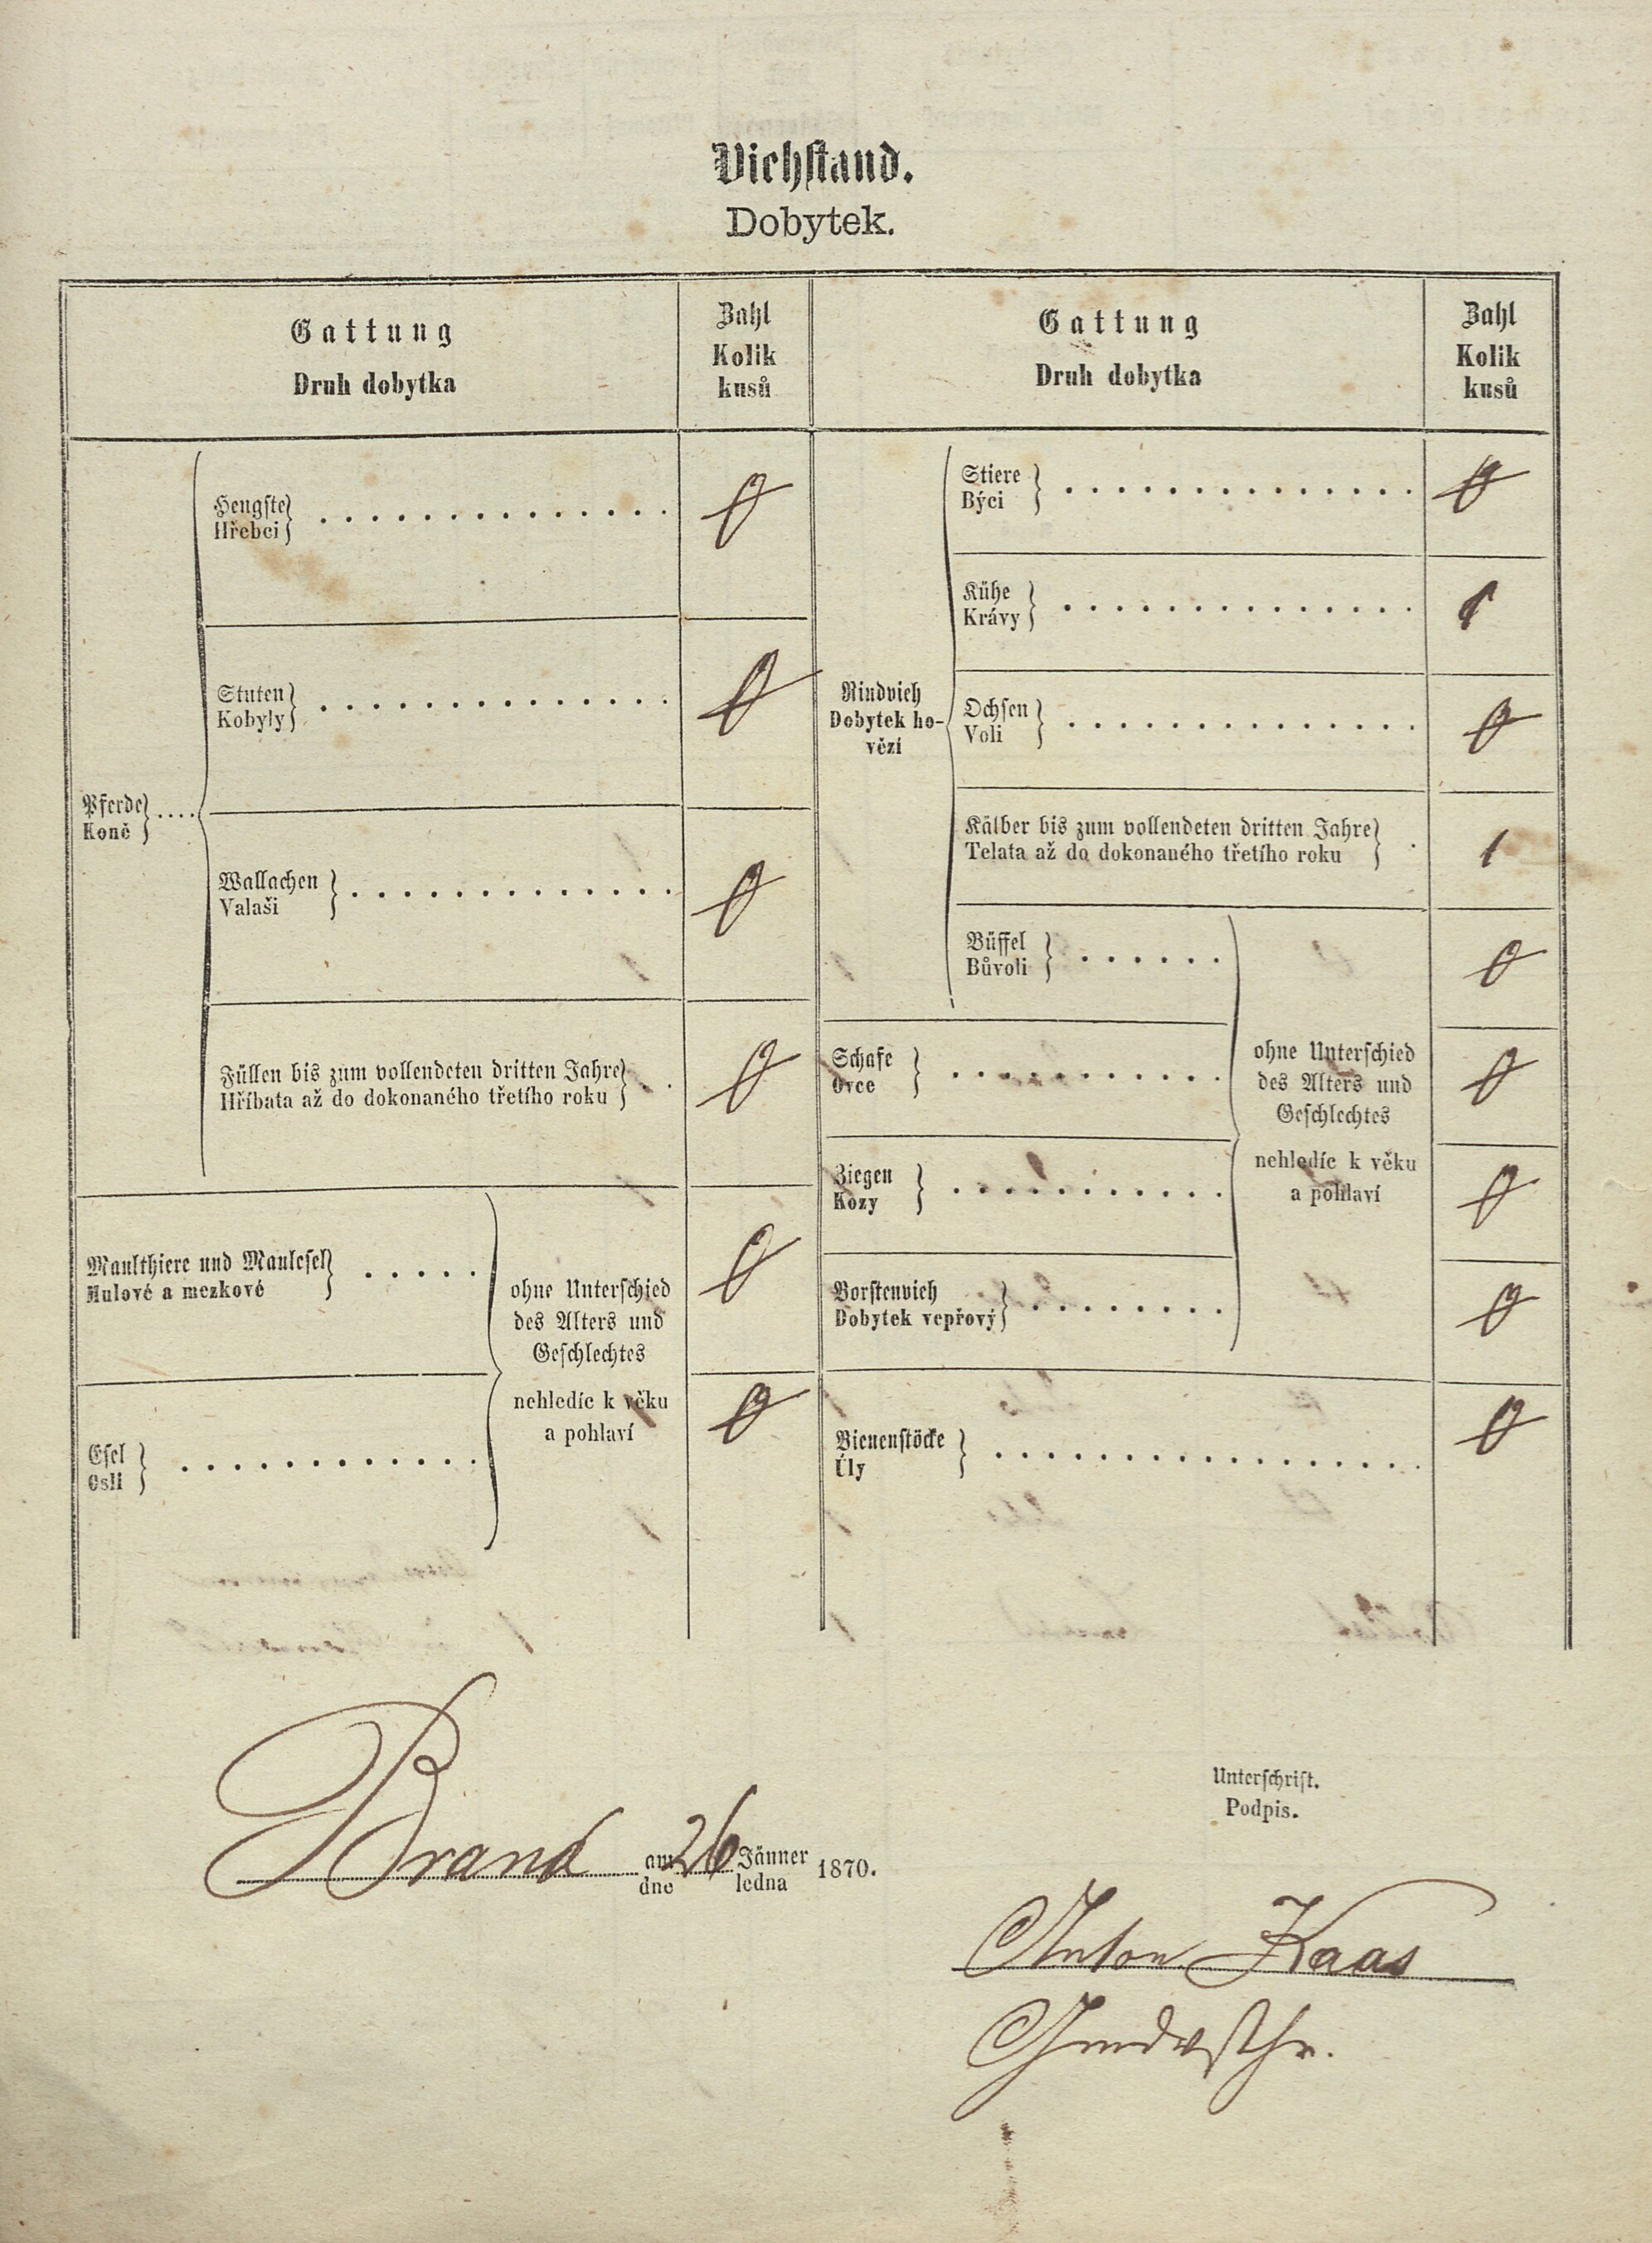 Viehstand.
Dobytek.
Gattung
Druh dobytka
Zahl
Kolik
kusů
Gattung
Druh dobytka
Zahl
Kolik
kusů
Pferde
Koně
Hengste
Hřebci
0
Stuten
Kobyly
0
Wallachen
Valaši
0
Füllen bis zum vollendeten dritten Jahre
Hříbata až do dokonaného třetího roku
0
Maulthiere und Maulesel
Mulové a mezkové
0
Esel
Osli
0
ohne Unterschied
des Alters und
Geschlechtes
nehledíc k věku
a pohlaví
Rindvieh
Dobytek ho-
vězí
Stiere
Býci
0
Kühe
Krávy
1
Ochsen
Voli
0
Kälber bis zum vollendeten dritten Jahre
Telata až do dokonaného třetího roku
1
Büffel
Bůvoli
0
Schafe
Ovce
0
Ziegen
Kozy
0
Borstenvieh
Dobytek vepřový
0
ohne Unterschied
des Alters und
Geschlechtes
nehledíc k věku
a pohlaví
Bienenstöcke
Úly
0
Brand am 26 Jänner 1870.
dne ledna
Unterschrift.
Podpis.
Anton Kaas